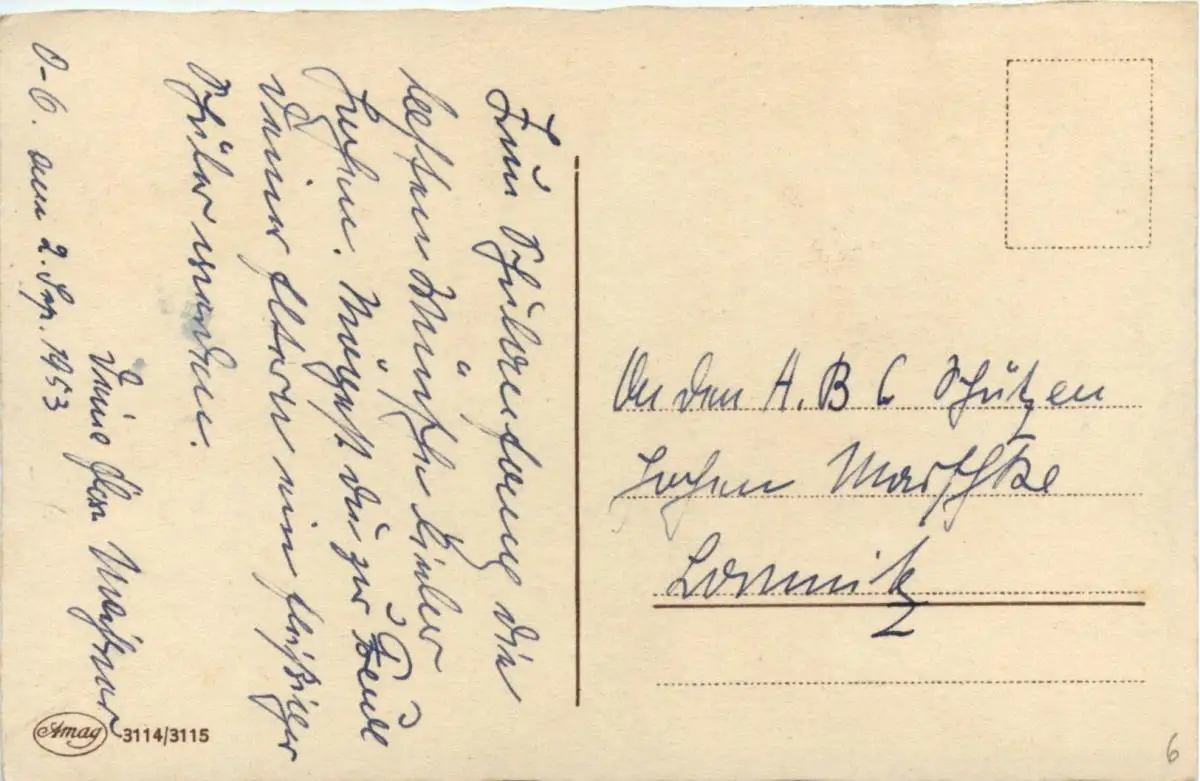 Zum Schulanfang die
besten Wünsche lieber
Jochen. Mögest du zur Freude
Deiner Eltern ein fleißiger
Schüler werden.
Deine Frau
O-C. den 2. Sep. 1953
An den A. B C Schützen
Jochen Marschke
Lomnitz
Amag 3114/3115
6